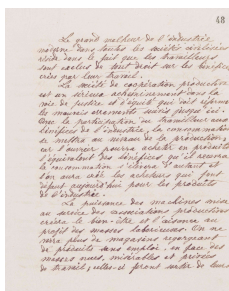 48
Le grand malheur de l'industrie
moderne dans toutes les sociétés civilisées
réside dans le fait que les travailleurs
sont exclus de tout droit sur les bénéfices
créés par leur travail.
La société de coopération, production
est un sérieux acheminement dans la
voie de justice et d'équité qui doit réformer
les mauvais errements suivis jusqu'ici.
Avec la participation du travailleur aux
bénéfices de l'industrie, la consommation
se mettra au niveau de la production,
car l'ouvrier pourra acheter en produits
l'équivalent des bénéfices qu'il aura
la consommation s'élèvera d'autant et
l'on aura créé les acheteurs qui font
défaut aujourd'hui pour les produits
de l'industrie.
La puissance des machines mise
au service des associations productives
créera le bien-être et l'aisance au
profit des masses laborieuses. On ne
verra plus de magasins regorgeant
de produits sans emploi, en face des
masses nues, misérables et privées
de travail; celles-ci feront sortir de leurs